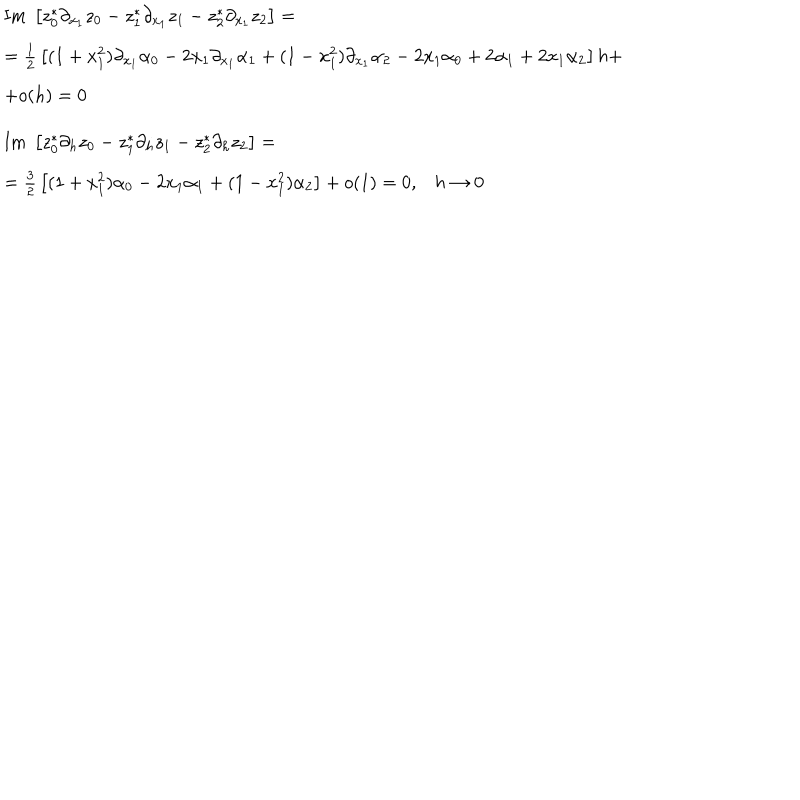 Im [z₀*∂ₓ₁z₀ − z₁*∂ₓ₁z₁ − z₂*∂ₓ₁z₂] =
= 1/2 [(1 + x₁²)∂ₓ₁α₀ − 2x₁∂ₓ₁α₁ + (1 − x₁²)∂ₓ₁α₂ − 2x₁α₀ + 2α₁ + 2x₁α₂] h+
+o(h) = 0
Im [z₀*∂ₕz₀ − z₁*∂ₕz₁ − z₂*∂ₕz₂] =
= 3/2 [(1 + x₁²)α₀ − 2x₁α₁ + (1 − x₁²)α₂] + o(1) = 0, h → 0